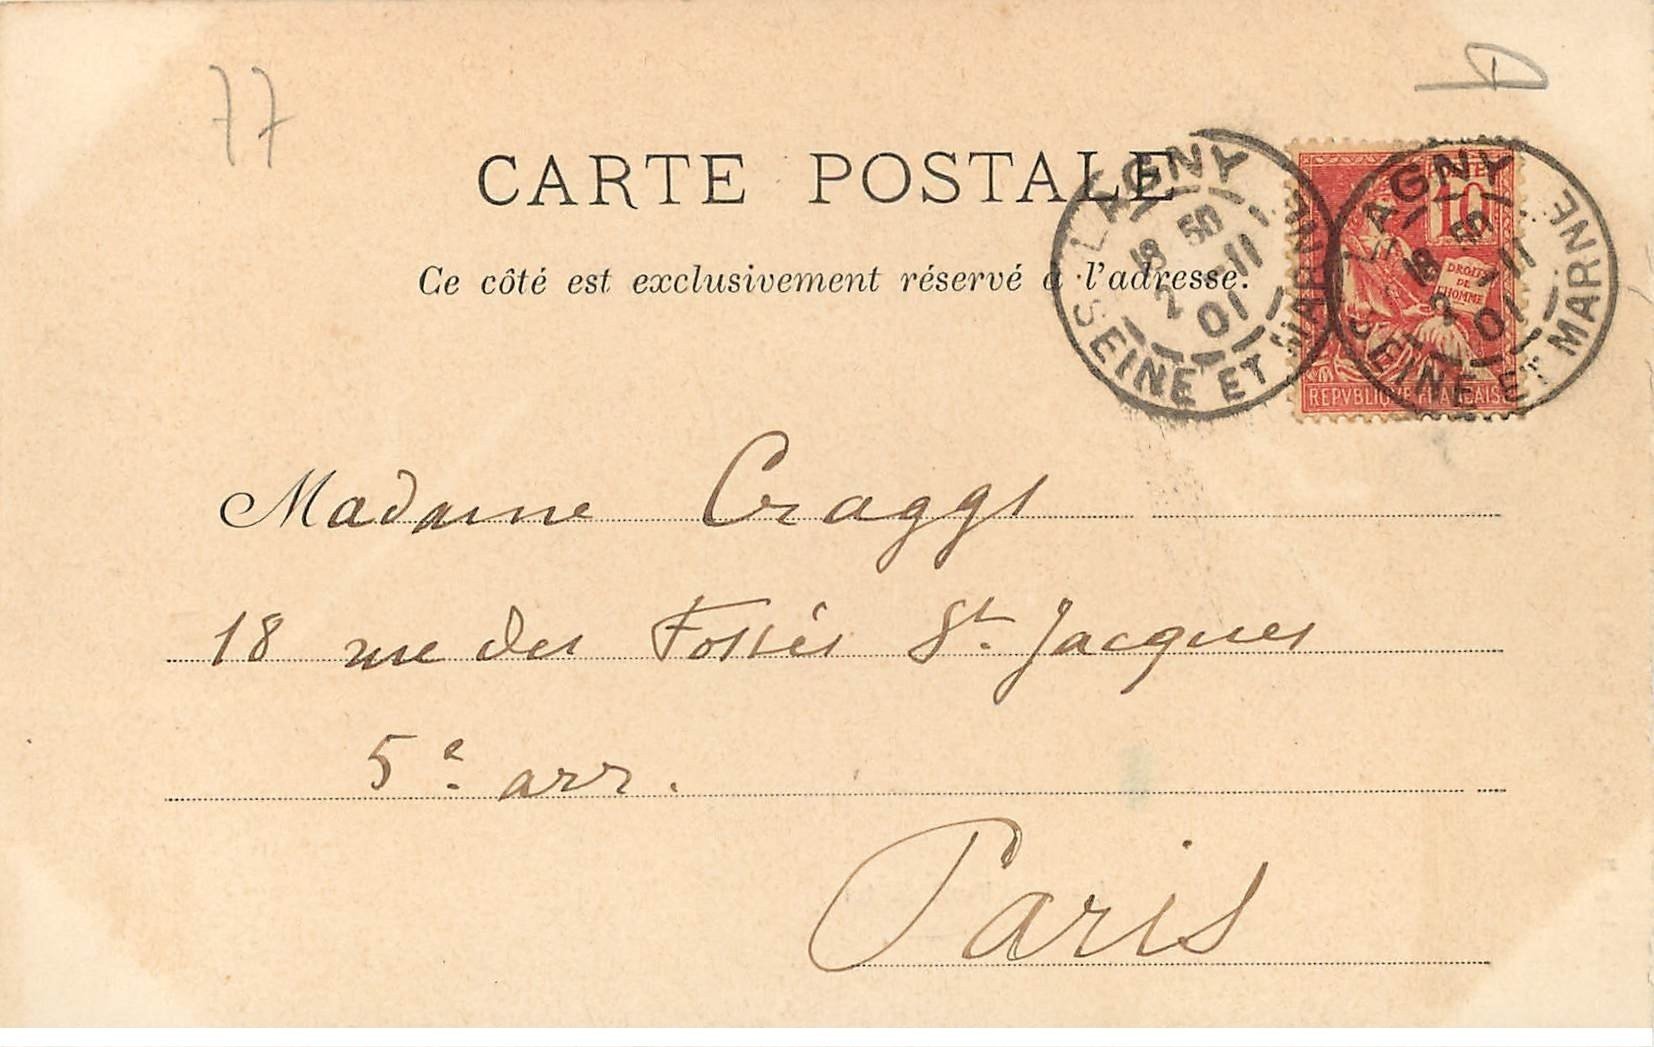 77
CARTE POSTALE
Ce côté est exclusivement réservé à l'adresse.
LAGNY
18 50
2 -11
01
SEINE ET MARNE
POSTES
10
DROITS
DE
L'HOMME
REPVBLIQUE FRANÇAISE
LAGNY
18 50
2 -11
01
SEINE ET MARNE
Madame Craggs
18 rue des Fossés St. Jacques
5e arr.
Paris